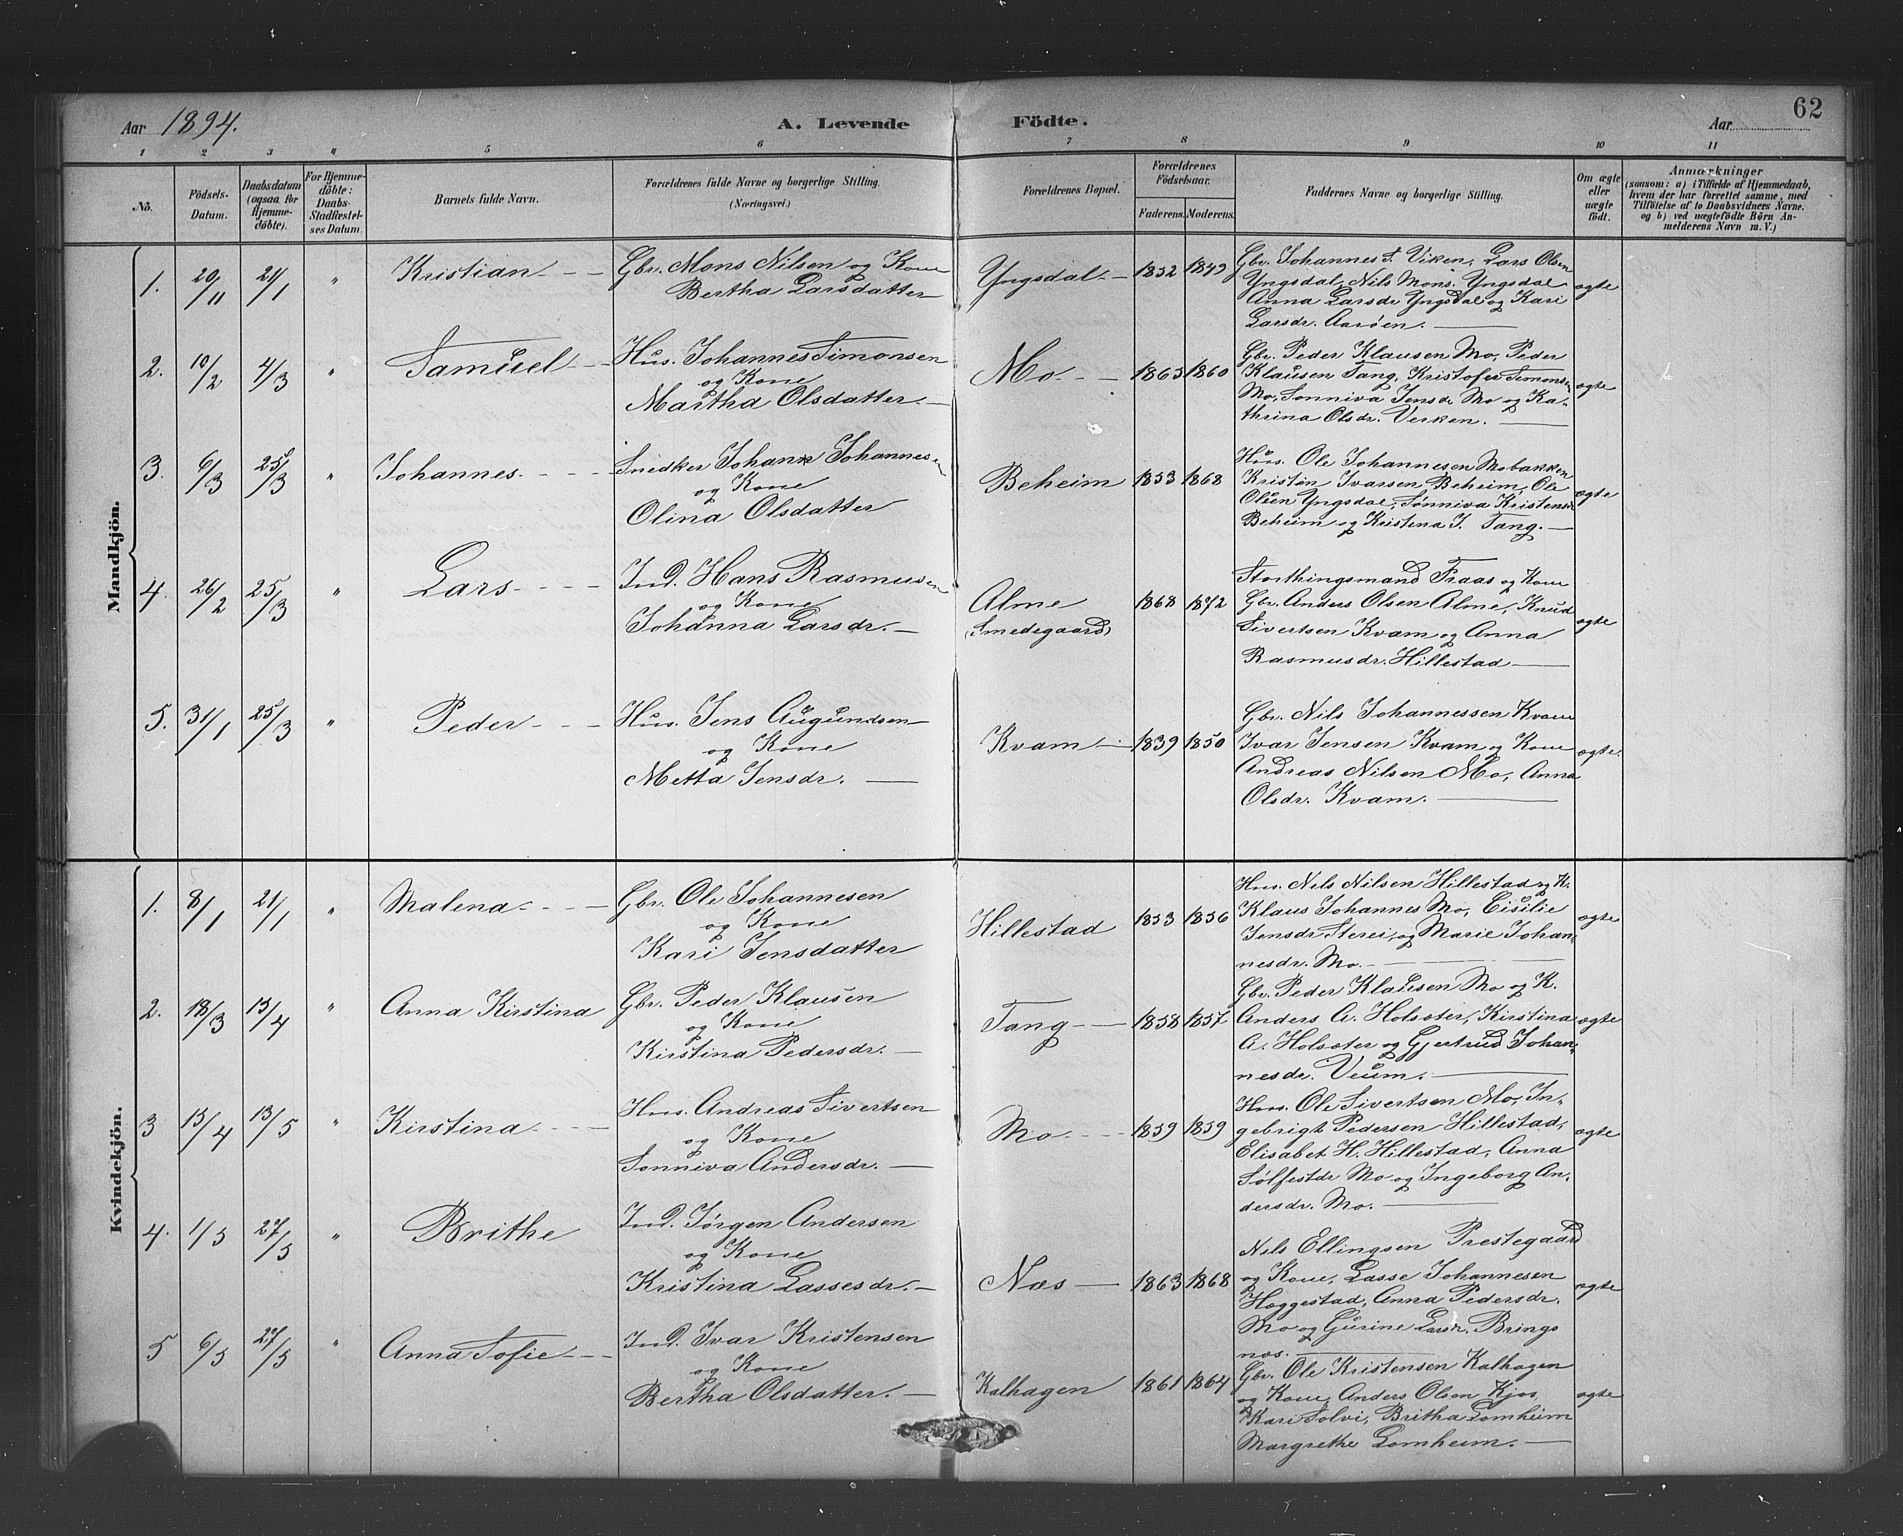 Aar 1894.
A. Levende Födte.
Aar
62
1 2 3 4 5 6 7 8 9 10 11
No.
Födsels-
Datum.
Daabsdatum
(ogsaa for
Hjemme-
döbte).
For Hjemme-
döbte:
Daabs-
Stadfæstel-
ses Datum.
Barnets fulde Navn.
Forældrenes fulde Navne og borgerlige Stilling.
(Næringsvei.)
Forældrenes Bopæl.
Forældrenes
Födselsaar.
Faderens. Moderens.
Faddernes Navne og borgerlige Stilling.
Om ægte
eller
uægte
födt.
Anmærkninger
(saasom: a) i Tilfælde af Hjemmedaab,
hvem der har forrettet samme, med
Tilföielse af to Daabsvidners Navne.
og b) ved uægtefödte Börn An-
melderens Navn m. V.)
Mandkjön.
1. 20/11 21/1 " Kristian
Gbr. Mons Nilsen og Kone
Bertha Larsdatter
Yngsdal 1852 1849
Gbr. Johannes J. Viken, Lars Olsen
Yngsdal, Nils Mons. Yngsdal
Anna Larsdr Yngsdal og Kari
Larsdr. Aarøen.
ægte
2. 10/2 4/3 " Samuel
Hus. Johannes Simonsen
og Kone
Martha Olsdatter
Mo. 1865 1860
Gbr. Peder Klausen Mo, Peder
Klausen Tang, Kristofer Simonsen
Mo, Sonniva Jensdr Mo og Ka-
thrina Olsdr. Verken.
ægte
3. 6/3 25/3 " Johannes.
Snedker Johan Johannesen
og Kone
Olina Olsdatter
Beheim 1853 1868
Hus. Ole Johannesen Mobakken
Kristen Ivarsen Beheim, Ole
Olsen Yngsdal, Sønniva Kristensdr
Beheim og Kristina J. Tang.
ægte
4. 26/2 25/3 " Lars
Ind. Hans Rasmusen
og Kone
Johanna Larsdr.
Alme
(Smedegaard)
1868 1872
Storthingsmand Fraas og Kone
Gbr. Anders Olsen Alme, Knud
Sivertsen Kvam og Anna
Rasmusdr. Hillestad
ægte
5. 31/1 25/3 " Peder
Hus. Jens Augundsen
og Kone
Metta Jensdr.
Kvam 1839 1850
Gbr. Nils Johannessen Kvam
Ivar Jensen Kvam og Kone
Andreas Nilsen Mo, Anna
Olsdr. Kvam.
ægte.
Kvindekjön.
1. 8/1 21/1 " Malena
Gbr. Ole Johannesen
og Kone
Kari Jensdatter
Hillestad 1853 1856
Hus. Nils Nilsen Hillestad og K.
Klaus Johannes Mo, Cisilie
Jensdr Sterei, og Marie Johan-
nesdr. Mo.
ægte
2. 18/3 15/4 " Anna Kirstina
Gbr. Peder Klausen
og Kone
Kirstina Pedersdr.
Tang 1858 1857
Gbr. Peder Klausen Mo og K.
Anders A. Holsæter, Kirstina
A. Holsæter og Gjertrud Johan-
nesdr. Veum.
ægte
3 15/4 13/5 " Kirstina
Hus. Andreas Sivertsen
og Kone
Sonniva Andersdr.
Mo. 1859 1859
Hus. Ole Sivertsen Mo, In-
gebrigt Pedersen Hillestad,
Elisabet H. Hillestad, Anna
Sølfestdr Mo og Ingeborg An-
dersdr. Mo.
ægte
4. 1/5 27/5 " Brithe
Ind. Jørgen Andersen
og Kone
Kristina Lassesdr.
Næs 1863 1868
Nils Ellingsen Prestegaard
og Kone, Lasse Johannesen
Hæggestad, Anna Pedersdr.
Mo og Gurine Larsdr. Brings
næs.
ægte
5 6/5 27/5 " Anna Sofie
Ind. Ivar Kristensen
og Kone
Bertha Olsdatter.
Kalhagen 1861 1864
Gbr. Ole Kristensen Kalhagen
og Kone, Anders Olsen Kjos,
Kari Solvi, Britha Lomheim
Margrethe Lomheim.
ægte